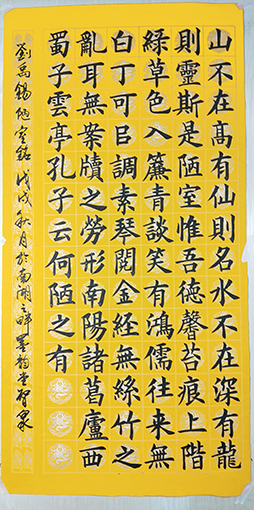 山不在髙有仙則名水不在深有龍
則靈斯是陋室惟吾徳馨苔痕上階
綠草色入簾青談笑有鴻儒往來無
白丁可㠯調素琴閱金經無絲竹之
亂耳無案牘之勞形南陽諸葛廬西
蜀子雲亭孔子云何陋之有
劉禹錫陋室銘戊戌秋月於南湖之畔墨韵堂智泉